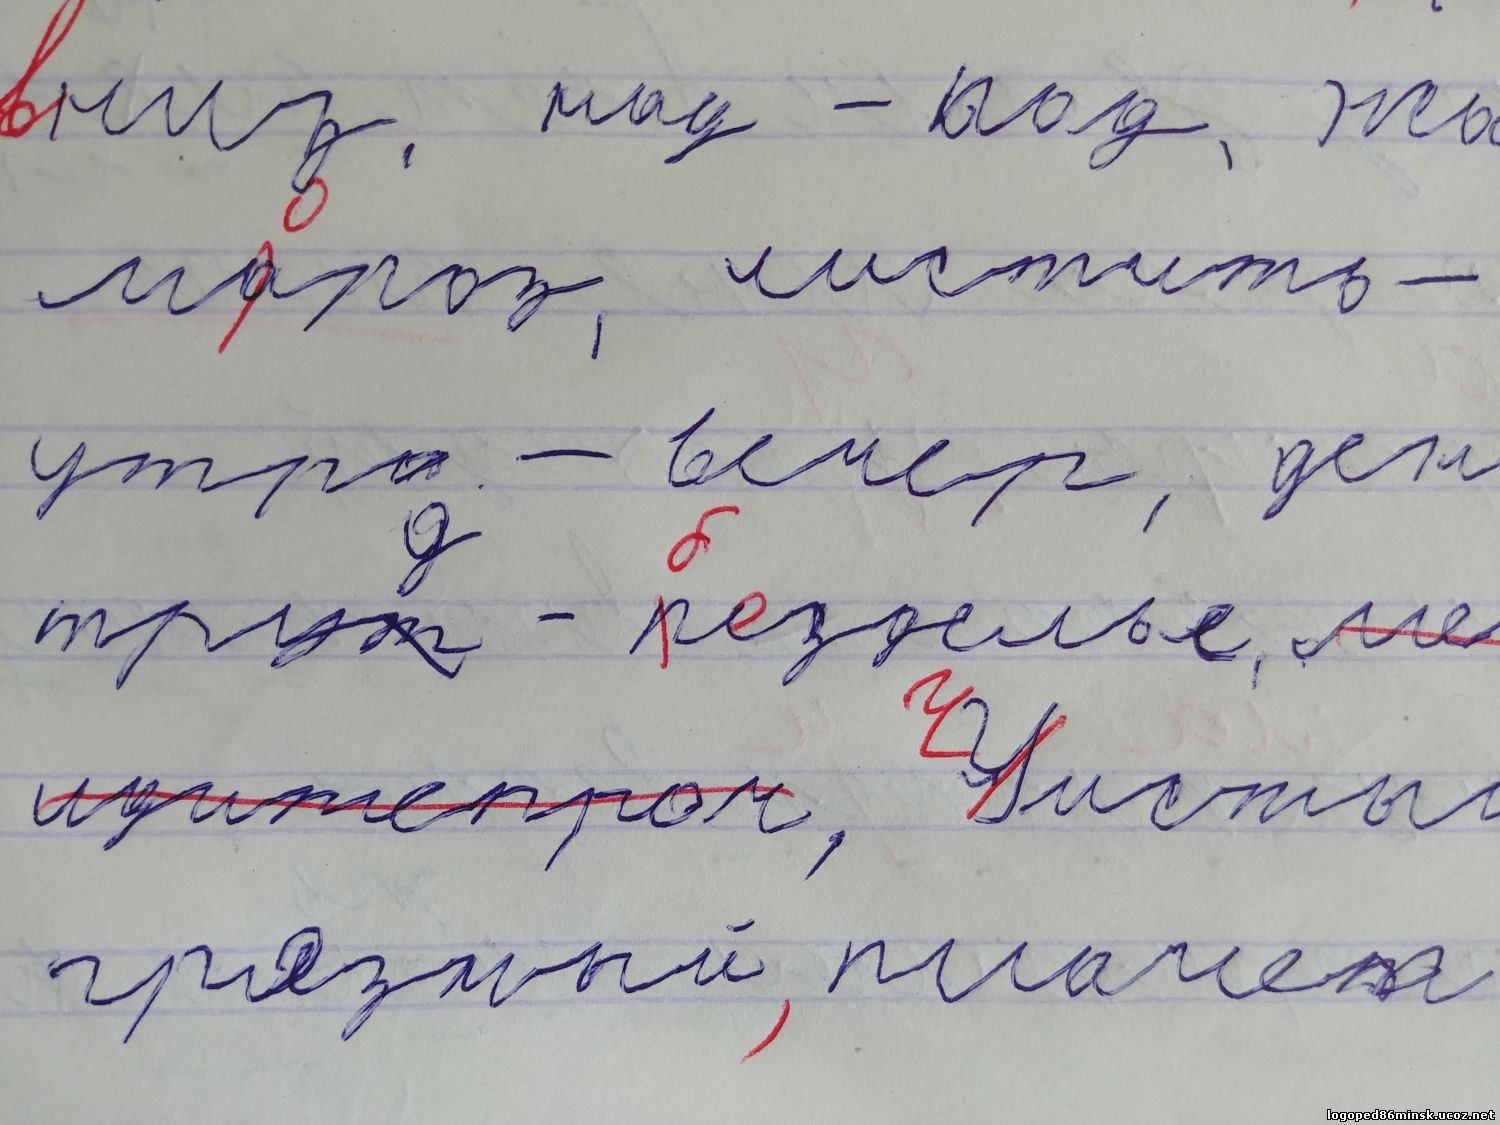 вниз, над - под, жа
о
мароз, чистить -
утро - вечер, ден
д б
труж - безделье, ме
Ч
Чистый
грязный, плачет
logoped86minsk.ucoz.net